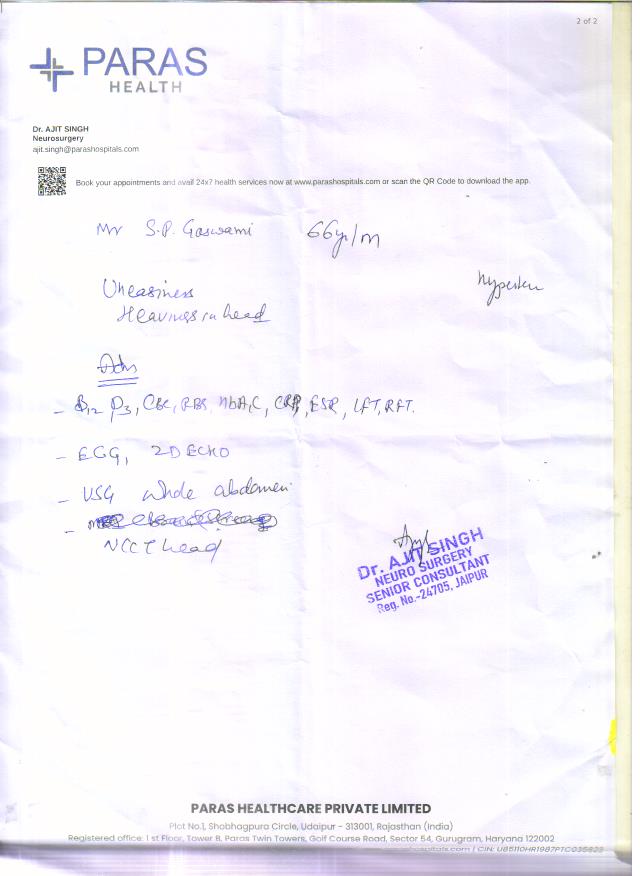 2 of 2
PARAS
HEALTH
Dr. AJIT SINGH
Neurosurgery
ajit.singh@parashospitals.com
Book your appointments and avail 24x7 health services now at www.parashospitals.com or scan the QR Code to download the app.
Mr S.P. Goswami 66yr/m
Uneasiness
Heaviness in head
Adv
- B12 D3, CBC, RBS, HbA1C, CRP, ESR, LFT, RFT.
- ECG, 2D ECHO
- USG whole abdomen
-
NCCT head
Dr. AJIT SINGH
NEURO SURGERY
SENIOR CONSULTANT
Reg. No.-24705, JAIPUR
PARAS HEALTHCARE PRIVATE LIMITED
Plot No.1, Shobhagpura Circle, Udaipur - 313001, Rajasthan (India)
Registered office: 1 st Floor, Tower B, Paras Twin Towers, Golf Course Road, Sector 54, Gurugram, Haryana 122002
CIN: U85110HR1987PTC035823